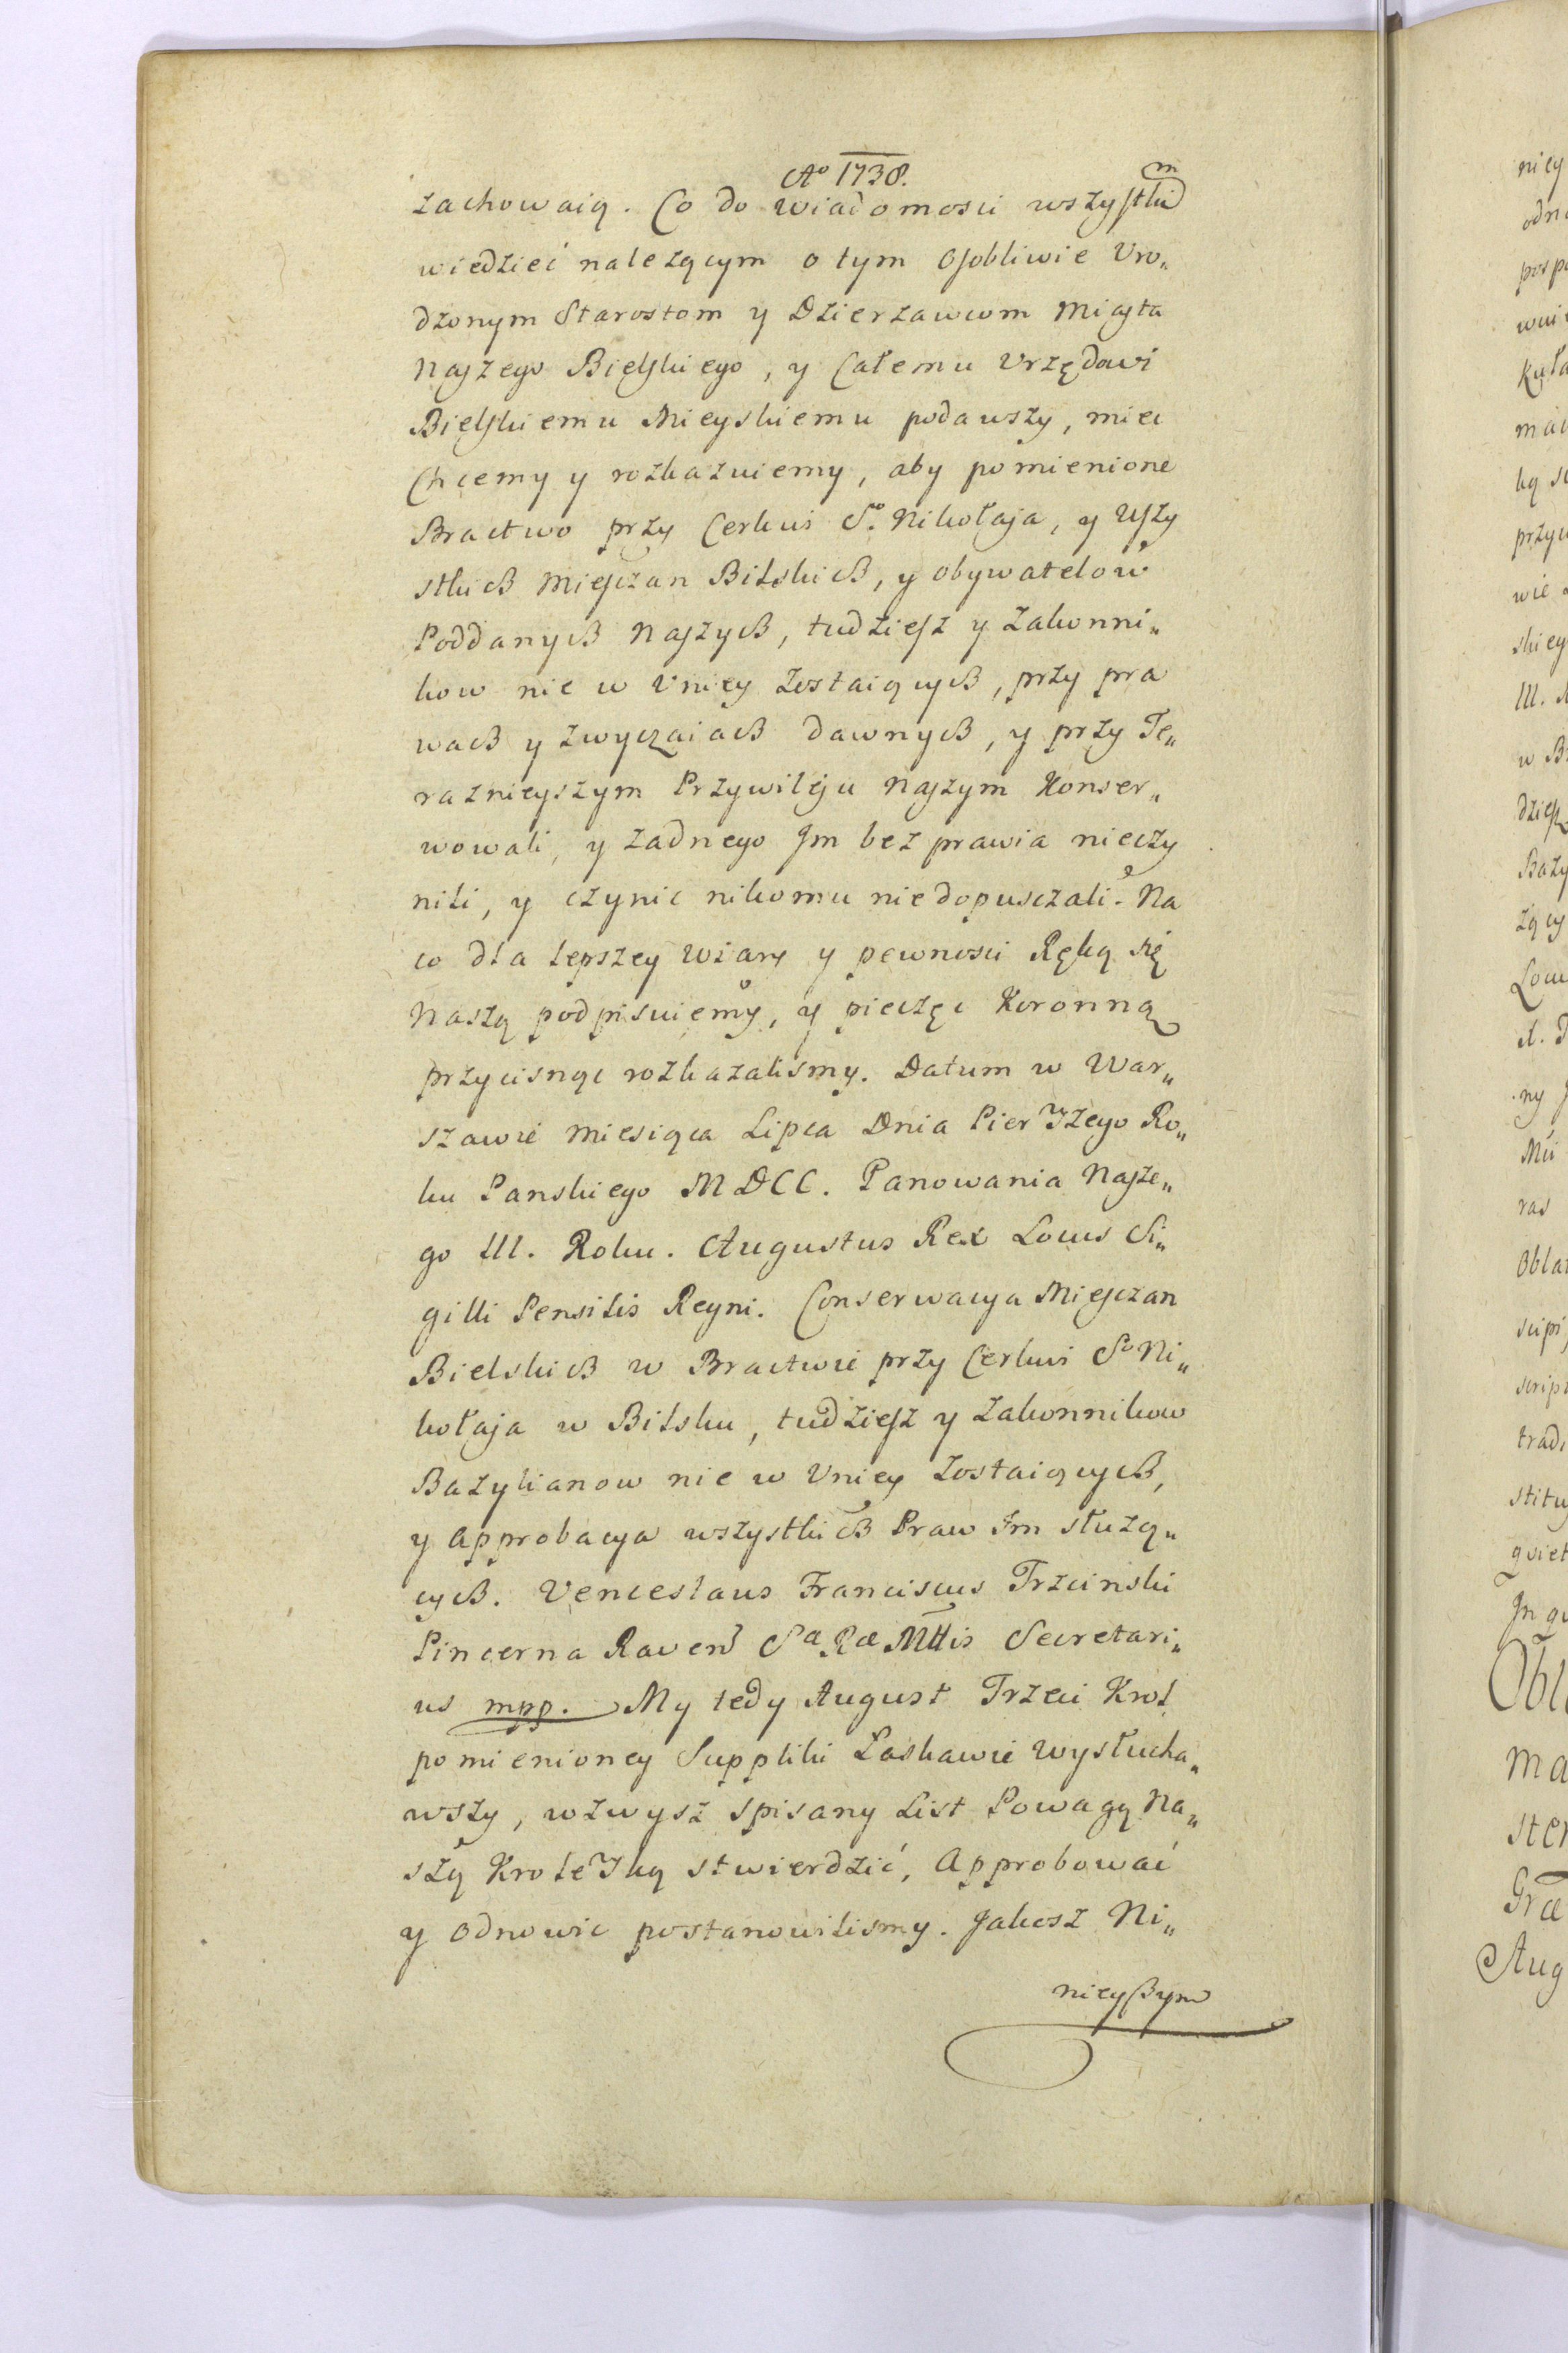 Aº 1738.
zachowaią. Co do wiadomosci wszystkim
wiedzieć nalezącym o tym osobliwie Uro„
dzonym Starostom y Dzierzawcom Miasta
Naszego Bielskiego, y Całemu Urzędowi
Bielskiemu Mieyskiemu podawszy, miec
Chcemy y rozkazuiemy, aby pomienione
Bractwo przy Cerkwi Sº. Nikołaja, y Wszy
stkich Miesczan Bilskich, y obywatelow
Poddanych Naszych, tudziesz y Zakonni„
kow nie w Uniey Zostaiących, przy pra
wach y zwyczaiach dawnych, y przy Te„
raznieyszym Przywileju Naszym Konser„
wowali, y zadnego Im bezprawia nieczy
nili, y czynic nikomu niedopusczali. Na
co dla lepszey wiary y pewnosci Ręką się
Naszą podpisuiemy, y pieczęc Koronną
przycisnąc rozkazalismy. Datum w War„
szawie Miesiąca Lipca Dnia Pierszego Ro„
ku Panskiego MDCC. Panowania Nasze„
go III. Roku. Augustus Rex Locus Si„
gilli Pensilis Regni. Conserwacya Miesczan
Bielskich w Bractwie przy Cerkwi Sº Ni„
kołaja w Bilsku, tudziesz y Zakonnikow
Bazylianow nie w Uniey Zostaiących,
y Approbacya wszystkich Praw Im służą„
cych. Venceslaus Franciscus Trzcinski
Pincerna Raven Sª Ræ Mttis Secretari„
us mpp. My tedy August Trzeci Krol
pomienioney Suppliki Łaskawie Wysłucha„
wszy, wzwysz spisany List Powagą Na„
szą Kroleską stwierdzić, Approbować
y odnowic postanowilismy. Jakosz Ni„
nieyszym
niey